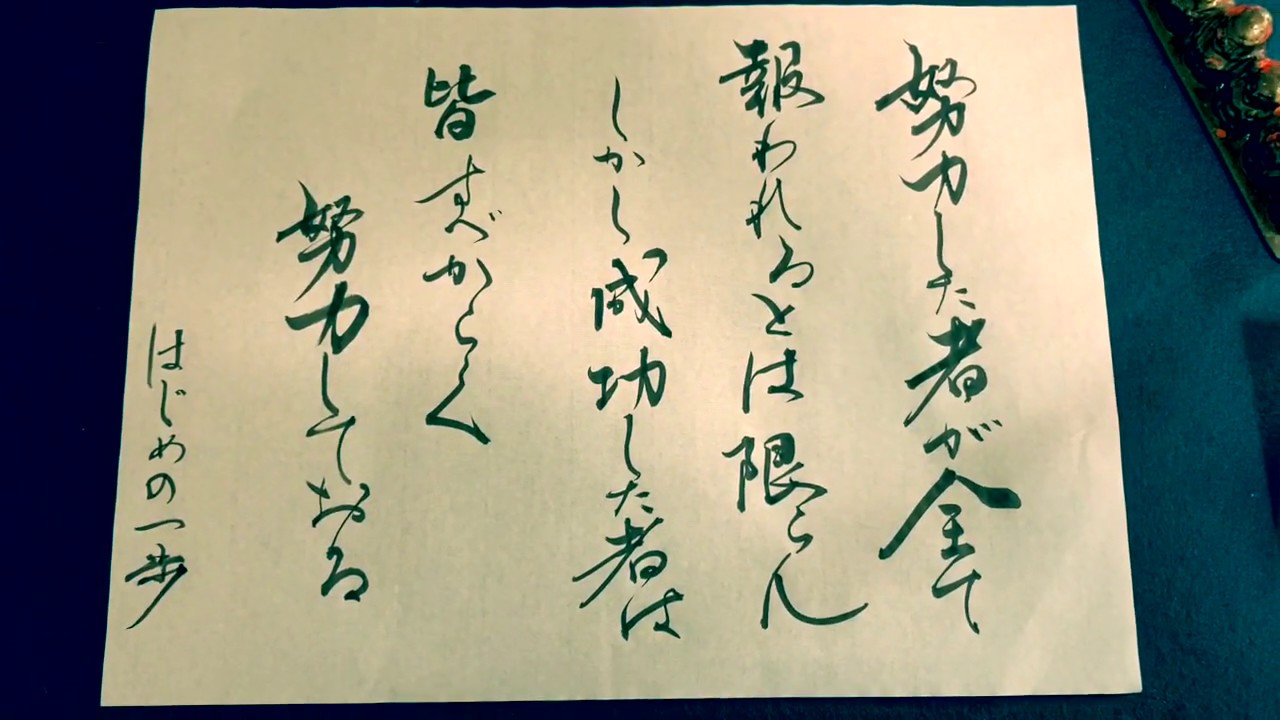 努力した者が全て
報われるとは限らん
しかし成功した者は
皆すべからく
努力しておる
はじめの一歩